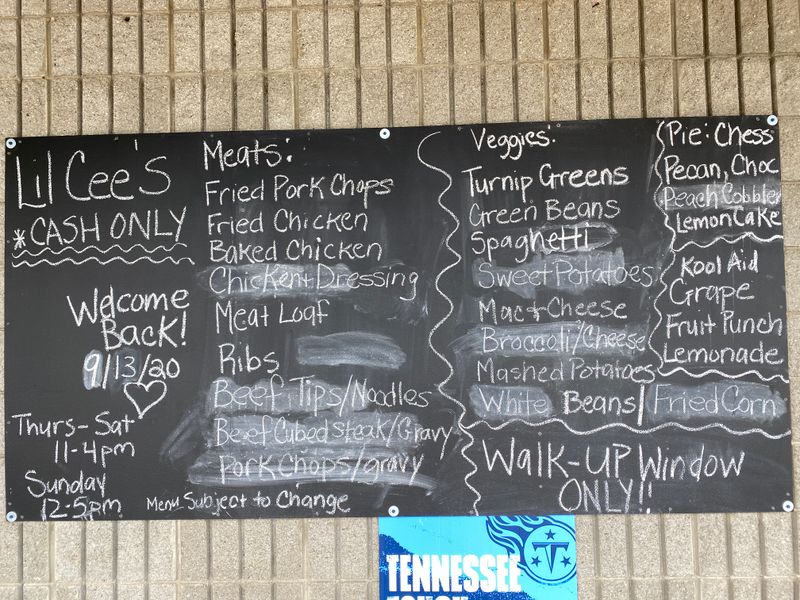 Lil Cee's
*CASH ONLY
Welcome
Back!
9/13/20
Thurs-Sat
11-4pm
Sunday
12-5pm
Meats:
Fried Pork Chops
Fried Chicken
Baked Chicken
Chicken+Dressing
Meat Loaf
Ribs
Beef Tips/Noodles
Beef Cubed Steak/Gravy
Pork Chops/gravy
Menu Subject to Change
Veggies:
Turnip Greens
Green Beans
Spaghetti
Sweet Potatoes
Mac+Cheese
Broccoli/Cheese
Mashed Potatoes
White Beans/Fried Corn
Pie: Chess
Pecan, Choc
Peach Cobbler
Lemon Cake
Kool Aid
Grape
Fruit Punch
Lemonade
WALK-UP Window
ONLY!!
TENNESSEE
TOUGH
T